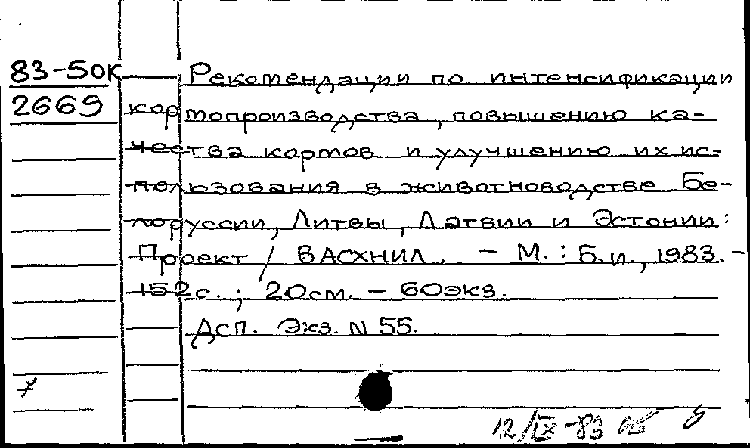 83-50К Рекомендации по интенсификации
2669 кормопроизводства, повышению ка-
чества кормов и улучшению их ис-
пользования в животноводстве Бе-
лоруссии, Литвы, Латвии и Эстонии:
Проект / ВАСХНИЛ. - М.: Б.и., 1983. -
152 с.; 20см. - 60экз.
Дсп. Экз. N 55.
12/IX-83